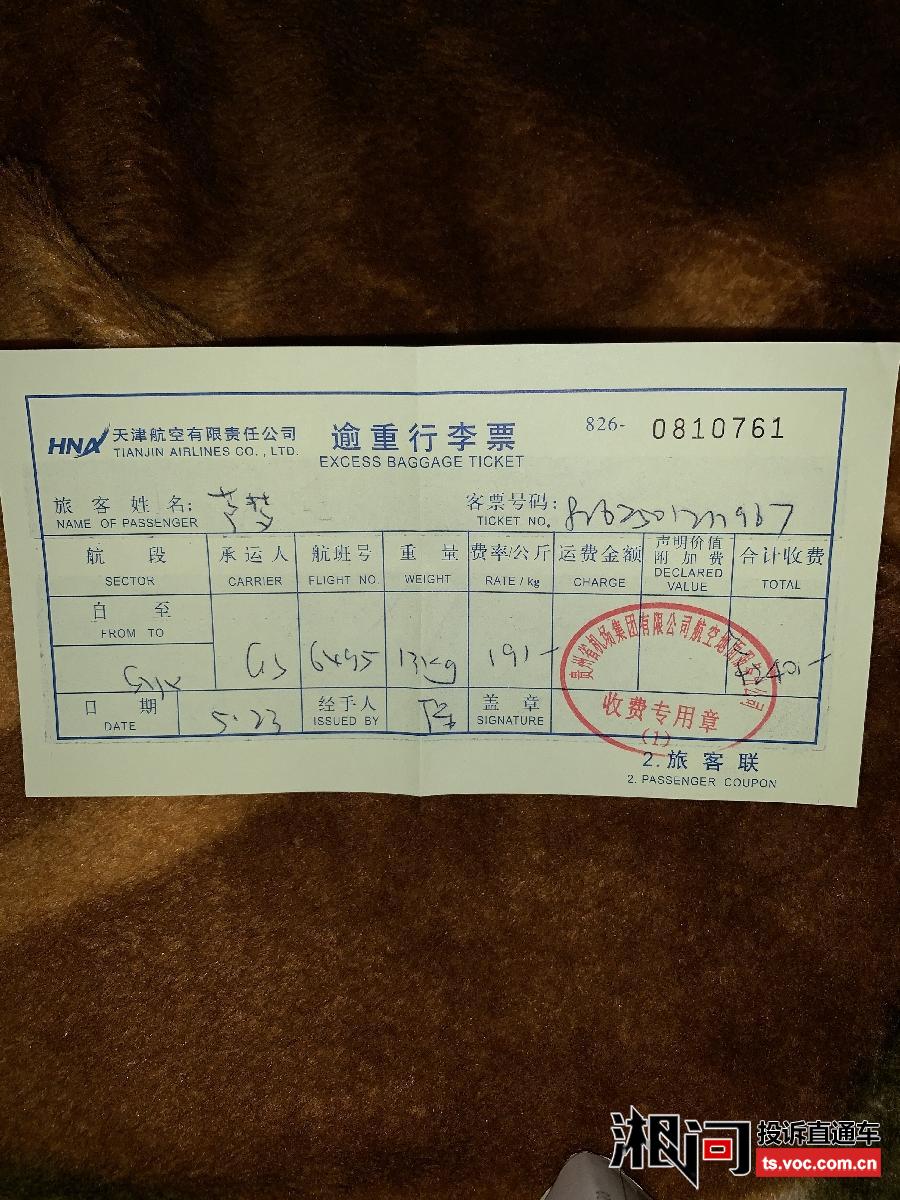 HNA 天津航空有限责任公司 逾重行李票 826- 0810761
TIANJIN AIRLINES CO., LTD. EXCESS BAGGAGE TICKET
旅客姓名: 客票号码:
NAME OF PASSENGER TICKET NO.
航段 承运人 航班号 重量 费率/公斤 运费金额 声明价值附加费 合计收费
SECTOR CARRIER FLIGHT NO. WEIGHT RATE/kg CHARGE DECLARED VALUE TOTAL
自 至
FROM TO
GS 6495 13kg 191-
日期 5.23 经手人 盖章
DATE ISSUED BY SIGNATURE
贵州省机场集团有限公司航空地面服务分公司
收费专用章
(1)
2.旅客联
2. PASSENGER COUPON
湘问 投诉直通车
ts.voc.com.cn